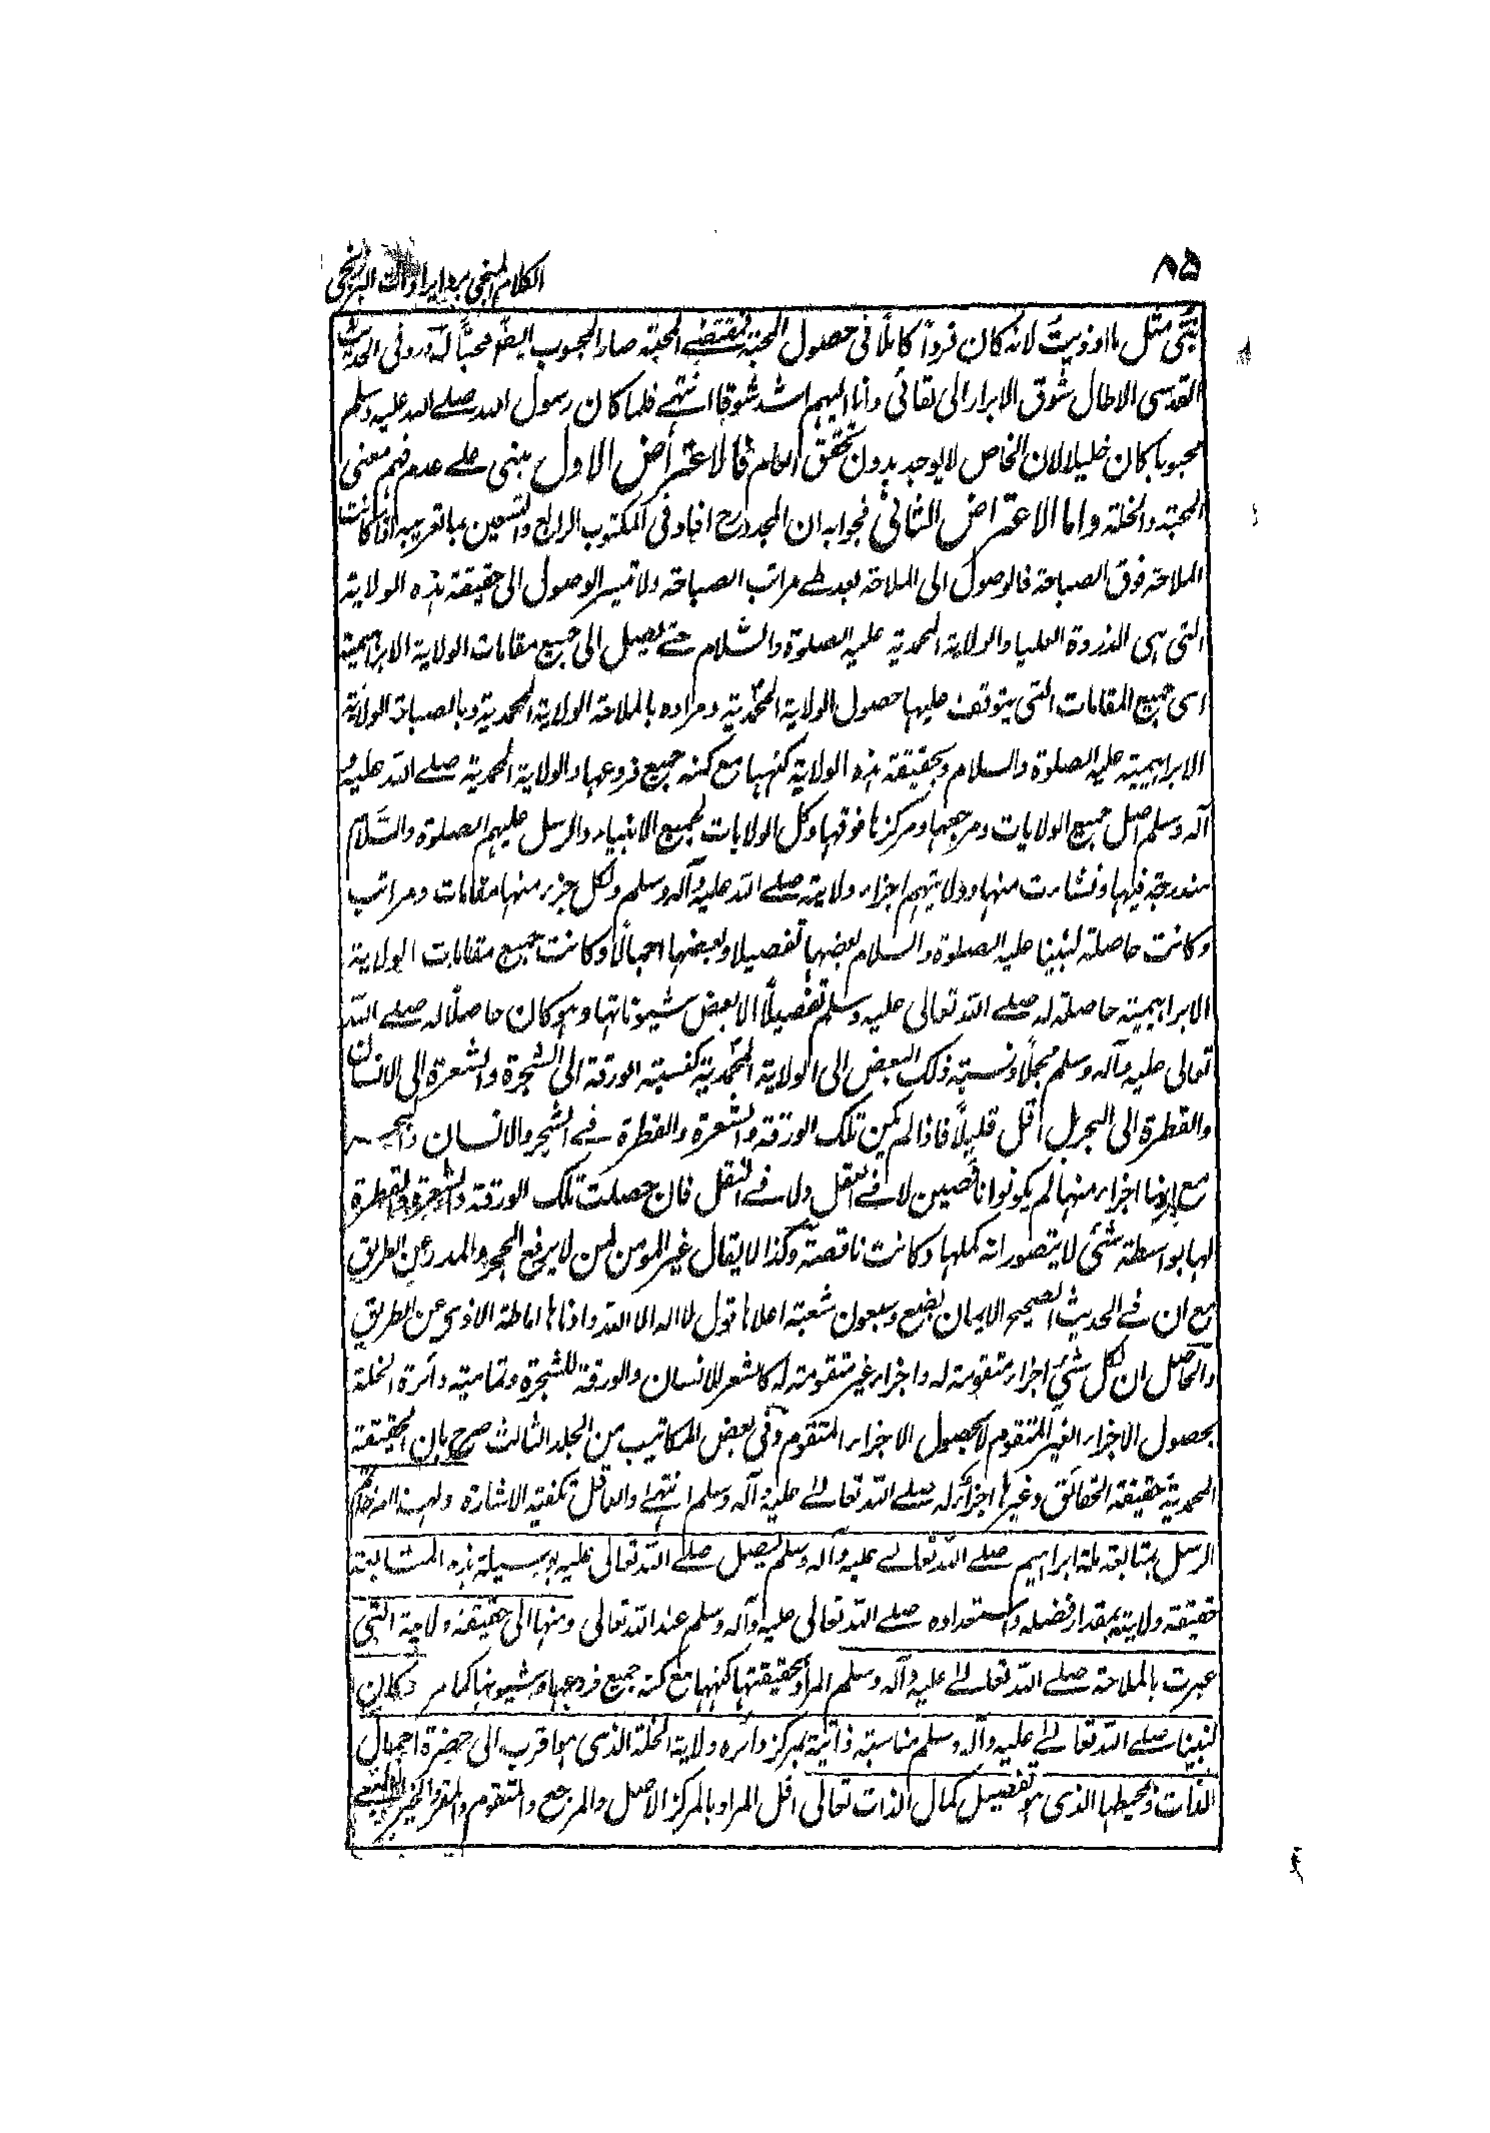 ٨٥
الكلام المنجي برد ايرادات البرزنجي
نبي مثل ما اوذيت لانه كان فردا كاملا في حصول المحبة فمقتضے المحبة صار المحبوب ايضا محبا له ورد في الحديث
القدسي الا طال شوق الابرار الى لقائي وانا اليهم اشد شوقا انتهے فلما كان رسول الله صلے الله عليه وسلم
محبوبا كان خليلا لان الخاص لا يوجد بدون تحقق العام فالاعتراض الاول مبنى علے عدم فهم معنى
المحبة والخلة واما الاعتراض الثاني فجوابه ان المجدد رح افاد في المكتوب الرابع والتسعين بما تعريبه اذا كانت
الملاحة فوق الصباحة فالوصول الى الملاحة بعد طے مراتب الصباحة ولا تيسر الوصول الى حقيقة هذه الولاية
التي هي الذروة العليا والولاية المحمدية عليه الصلوة والسلام حتے يصل الى جميع مقامات الولاية الابراهيمية
اى جميع المقامات التى يتوقف عليها حصول الولاية المحمدية ومراده بالملاحة الولاية المحمدية وبالصباحة الولاية
الابراهيمية عليه الصلوة والسلام وبحقيقة هذه الولاية كنهها مع كنه جميع فروعها والولاية المحمدية صلے الله عليه و
آله وسلم اصل جميع الولايات ومرجعها ومركزها فوقها وكل الولايات لجميع الانبياء والرسل عليهم الصلوة والسلام
مندرجة فيها ونشأت منها وولايتهم اجزاء ولايته صلے الله عليه وآله وسلم ولكل جزء منها مقامات ومراتب
وكانت حاصلة لنبينا عليه الصلوة والسلام بعضها تفصيلا وبعضها اجمالا وكانت جميع مقامات الولاية
الابراهيمية حاصلة له صلے الله تعالى عليه وسلم تفصيلا الا بعض شيوناتها وهو كان حاصلا له صلے الله
تعالى عليه وآله وسلم مجملا ونسبة ذلك البعض الى الولاية المحمدية كنسبة الورقة الى الشجرة والشعرة الى الانسان
والقطرة الى البحر بل اقل قليلا فاذا لم يكن تلك الورقة والشعرة والقطرة فے الشجر والانسان والبحر
مع انها اجزاء منها لم يكونوا ناقصين لا فے العقل ولا فے النقل فان حصلت تلك الورقة والشعرة والقطرة
لها بواسطة شئ لا يتصور انه كملها وكانت ناقصة وكذا لا يقال غير المومن لمن لا يرفع الحجر والمدر عن الطريق
مع ان فے الحديث الصحيح الايمان بضع وسبعون شعبة اعلاها قول لا اله الا الله وادناها اماطة الاذى عن الطريق
والحاصل ان لكل شئ اجزاء متقومة له واجزاء غير متقومة له كالشعر للانسان والورقة للشجرة وتمامية دائرة الخلة
بحصول الاجزاء الغير المتقوم لا بحصول الاجزاء المتقوم وفى بعض المكاتيب من الجلد الثالث صرح بان الحقيقة
المحمدية حقيقة الحقائق وغيرها اجزائه له صلے الله تعالے عليه وآله وسلم انتهے والعاقل تكفيه الاشارة ولهذا امر خاتم
الرسل بمتابعة ملة ابراهيم صلے الله تعالے عليه وآله وسلم ليصل صلے الله تعالى عليه بوسيلة هذه المتابعة
حقيقة ولايته بمقدار فضله واستعداده صلے الله تعالى عليه وآله وسلم عند الله تعالى ومنها الى حقيقة ولاية التى
عبرت بالملاحة صلے الله تعالے عليه وآله وسلم المراد بحقيقتها كنهها مع كنه جميع فروعها وشيونها كما مر وكان
لنبينا صلے الله تعالے عليه وآله وسلم مناسبة ذاتية بمركز دائره ولاية الخلة الذى هو اقرب الى حضرة اجمال
الذات ومحيطها الذى هو تفصيل كمال الذات تعالى اقل المراد بالمركز الاصل والمرجع والمتقوم والمقر والخير